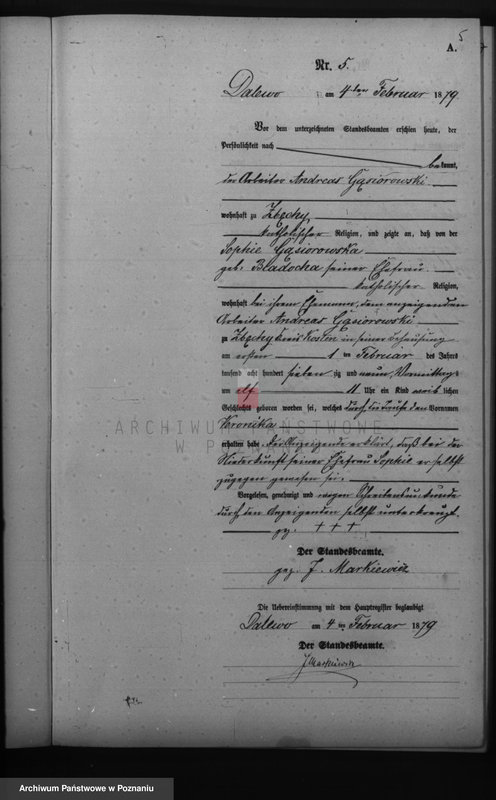 5
A.
Nr. 5.
Dalewo am 4ten Februar 1879.
Vor dem unterzeichneten Standesbeamten erschien heute, der
Persönlichkeit nach
bekannt,
der Arbeiter Andreas Gąsiorowski
wohnhaft zu Zbęchy
katholischer Religion, und zeigte an, daß von der
Sophie Gąsiorowska
geb. Bladocha seiner Ehefrau
katholischer Religion,
wohnhaft bei ihrem Ehemanne, dem anzeigenden
Arbeiter Andreas Gąsiorowski
zu Zbęchy Kreis Kosten in seiner Behausung
am ersten 1 ten Februar des Jahrs
tausend acht hundert sieben zig und neun, Vormittags
um elf 11 Uhr ein Kind weiblichen
Geschlechts geboren worden sei, welches durch die Taufe den Vornamen
Veronika
erhalten habe. Der Anzeigende erklärt, daß bei der
Niederkunft seiner Ehefrau Sophie er selbst
zugegen gewesen sei.
Vorgelesen, genehmigt und wegen Schreibensunkunde
durch den Anzeigenden selbst unterkreuzt.
gez. + + +
Der Standesbeamte.
gez. J. Markiewicz
Die Uebereinstimmung mit dem Hauptregister beglaubigt
Dalewo am 4 ten Februar 1879
Der Standesbeamte.
J Markiewicz
ARCHIWUM PAŃSTWOWE
W POZNANIU
Archiwum Państwowe w Poznaniu